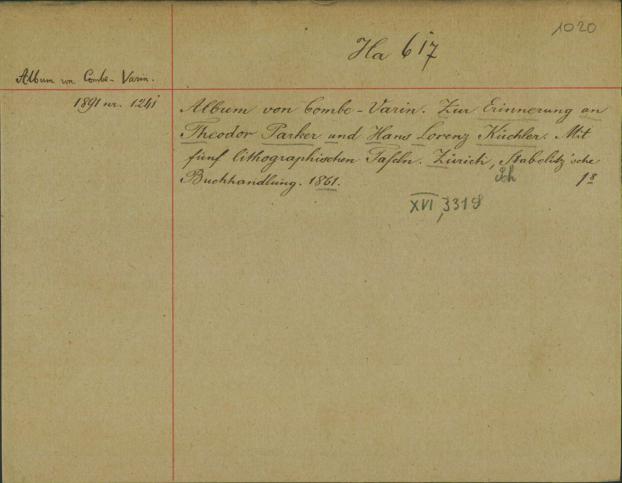 1020
Ha 617
Album von Combe-Varin.
1891 nr. 1241
Album von Combe-Varin. Zur Erinnerung an
Theodor Parker und Hans Lorenz Küchler. Mit
fünf lithographischen Tafeln. Zürich, Schabelitz'sche
Buchhandlung. 1861. 18
XVI, 331 S